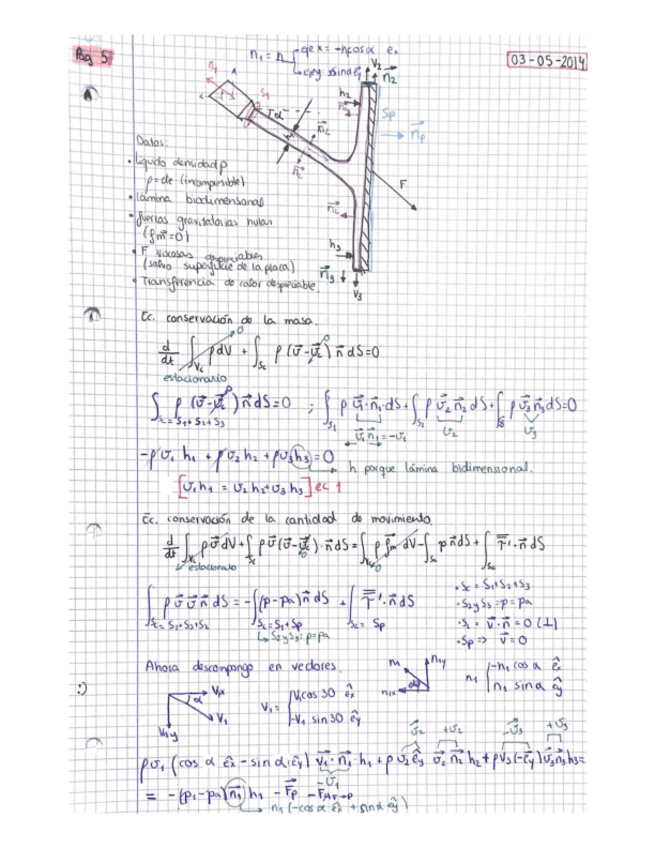 Pag 5
03-05-2014
n₁ = n eje x = -n cos α eₓ
eje y sin α e_y
V₂
n₂
h₂
Sp
n_p
n₁
A
S₁
α
n_L
n_L
F
n_L
h₃
n₃
V₃
Datos:
• Líquido densidad ρ
ρ=cte (incompresible)
• Lámina bidimensional
• fuerzas gravitatorias nulas
(fm=0)
• F viscosas despreciables
(salvo superficie de la placa)
• Transferencia de calor despreciable
Ec. conservación de la masa.
d/dt ∫_Vc ρ dV + ∫_Sc ρ (v - v_c) n dS = 0
estacionario
∫_{Sc = S₁+S₂+S₃} ρ (v - v_c) n dS = 0 ; ∫_{S₁} ρ v₁·n₁ dS + ∫_{S₂} ρ v₂ n₂ dS + ∫_{S₃} ρ v₃ n₃ dS = 0
v₁ n₁ = -v₁ v₂ v₃
-ρ v₁ h₁ + ρ v₂ h₂ + ρ v₃ h₃ = 0
h porque lámina bidimensional.
[v₁ h₁ = v₂ h₂ + v₃ h₃] ec 1
Ec. conservación de la cantidad de movimiento
d/dt ∫_Vc ρ v dV + ∫_Sc ρ v (v - v_c)·n dS = ∫_Vc ρ fm dV - ∫_Sc p n dS + ∫_Sc τ'·n dS
estacionario
∫_{Sc = S₁+S₃+S₂} ρ v v n dS = -∫_{Sc = S₁+Sp} (p - pa) n dS + ∫_{Sc = Sp} τ'·n dS
S₂ y S₃: p=pa
• Sc = S₁+S₂+S₃
• S₂ y S₃ = p = pa
• S_L = v·n = 0 (⊥)
• Sp => v = 0
Ahora descompongo en vectores.
V₁x
α
V₁
V₁y
V₁ = { V₁ cos 30 êₓ
-V₁ sin 30 ê_y
n₁
n₁y
n₁x
α
n₁ { -n₁ cos α êₓ
n₁ sin α ê_y
v₂ +v₂ -v₃ +v₃
ρ v₁ (cos α êₓ - sin α ê_y) v₁·n₁·h₁ + ρ v₂ ê_y v₂ n₂ h₂ + ρ v₃ (-ê_y) v₃ n₃ h₃ =
-v₁
= -(p₁ - pa) n₁ h₁ - Fp
n₁ (-cos α êₓ + sin α ê_y)
:)